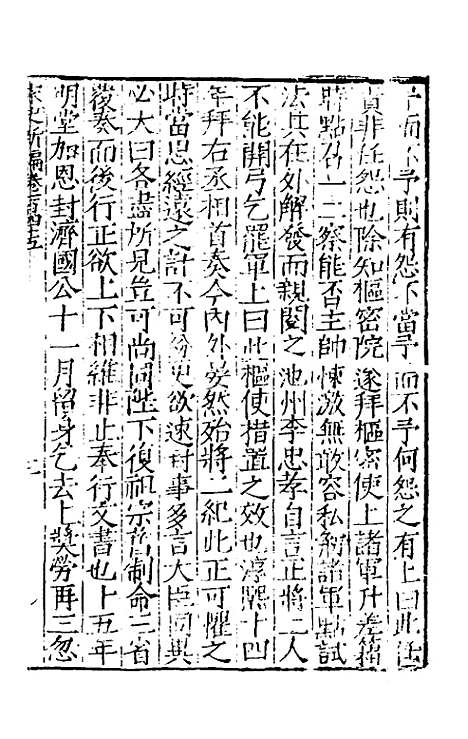 予而不予則有怨不當予而不予何怨之有上曰此任
責非任怨也除知樞密院遂拜樞密使上諸軍升差籍
時點召一二察能否主帥悚激無敢容私創諸軍點試
法其在外解發而親閱之池州李忠孝自言正將二人
不能開弓乞罷軍上曰此樞使措置之效也淳熙十四
年拜右丞相首奏今內外晏然殆將二紀此正可懼之
時當思經遠之計不可紛更欲速封事多言大臣同異
必大曰各盡所見豈可尚同陛下復祖宗舊制命三省
覆奏而後行正欲上下相維非止奉行文書也十五年
明堂加恩封濟國公十一月留身乞去上奬勞再三忽
宋史新編卷一百四十五